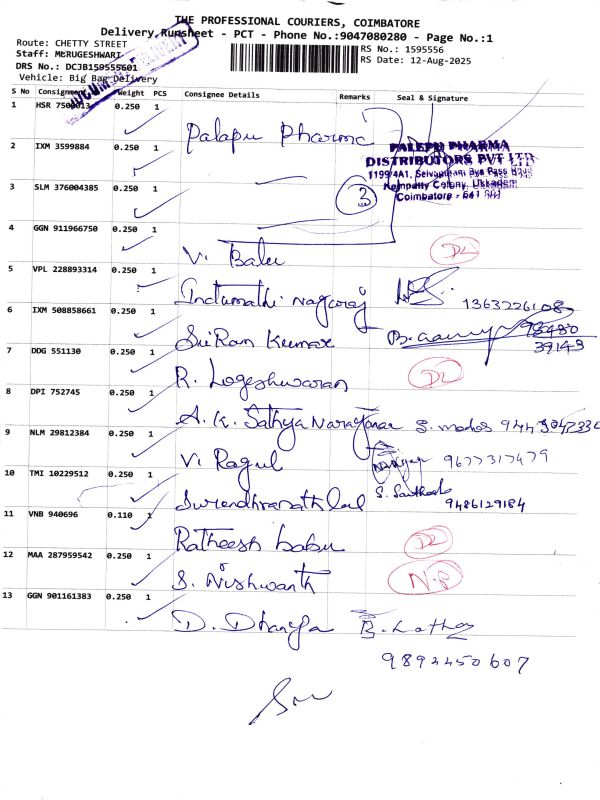 THE PROFESSIONAL COURIERS, COIMBATORE
Delivery Runsheet - PCT - Phone No.:9047080280 - Page No.:1
Route: CHETTY STREET
RS No.: 1595556
Staff: MURUGESHWARI
RS Date: 12-Aug-2025
DRS No.: DCJB159555601
Vehicle: Big Bag Delivery
S No Consignment Weight PCS Consignee Details Remarks Seal & Signature
1 HSR 7500013 0.250 1 Palapu Pharma
PALEPU PHARMA
DISTRIBUTORS PVT LTD
1199/4A1, Selvapuram Bye Pass Road
Kempatty Colony, Ukkadam
Coimbatore - 641 001
2 IXM 3599884 0.250 1
3 SLM 376004385 0.250 1
3
4 GGN 911966750 0.250 1 V. Balu DL
5 VPL 228893314 0.250 1 Indumathi Nagaraj 1363226108
6 IXM 508858661 0.250 1 SriRam Kumar 95430
39143
7 DDG 551130 0.250 1 R. Logeshwaran DL
8 DPI 752745 0.250 1 A.K. Sathya Narayanan
9 NLM 29812384 0.250 1 V. Ragul 9677317479
10 TMI 10229512 0.250 1 Surendhranath lal S. Santhosh
9486129184
11 VNB 940696 0.110 1 Ratheesh babu DL
12 MAA 287959542 0.250 1 S. Nishwanth N.P
13 GGN 901161383 0.250 1 D. Dhanya
9892450607